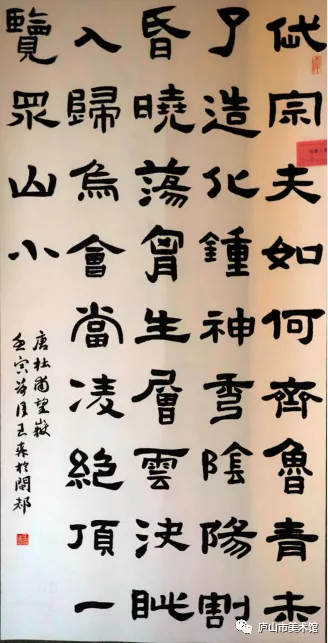 岱宗夫如何齊魯青未
了造化鍾神秀陰陽割
昏曉蕩胷生層雲決眦
入歸鳥會當凌絕頂一
覽眾山小
唐杜甫望嶽
壬寅 月王 於閩
庐山市美术馆